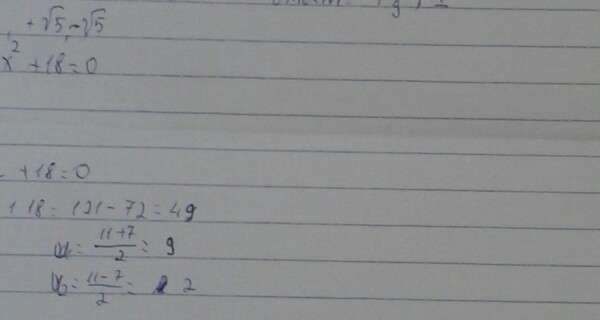 +√5, -√5
x² + 18 = 0
+ 18 = 0
18 = 121 - 72 = 49
= (11+7)/2 = 9
= (11-7)/2 = 2